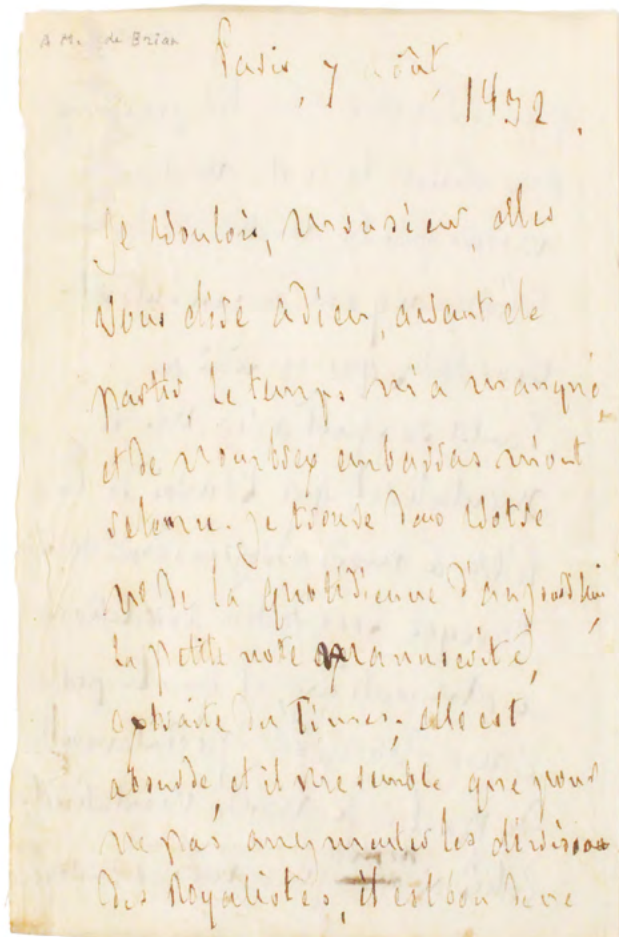 A M. de Brian
Paris, 7 août
1832.
Je voulois, Monsieur, aller
vous dire adieu, avant de
partir le temps m'a manqué,
et de nombreux embarras m'ont
retenu. Je trouve dans votre
no de la quotidienne d'aujourd'hui,
la petite note manuscrite,
extraite du Times; elle est
absurde, et il me semble que pour
ne pas augmenter les divisions
des Royalistes, il est bon de ne